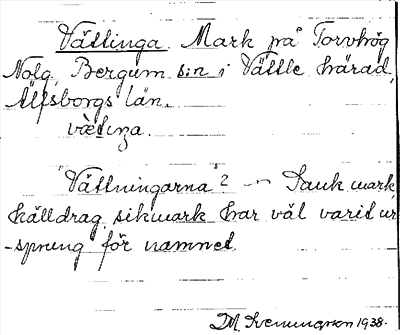 Vättinga Mark på Torvhög
Nolg. Bergum sn i Vättle härad,
Älfsborgs län.
vätiŋa.
"Vättningarna"? — Sank mark,
källdrag, sikmark har väl varit ur
-sprung för namnet.
D.M. Svenningson 1938.